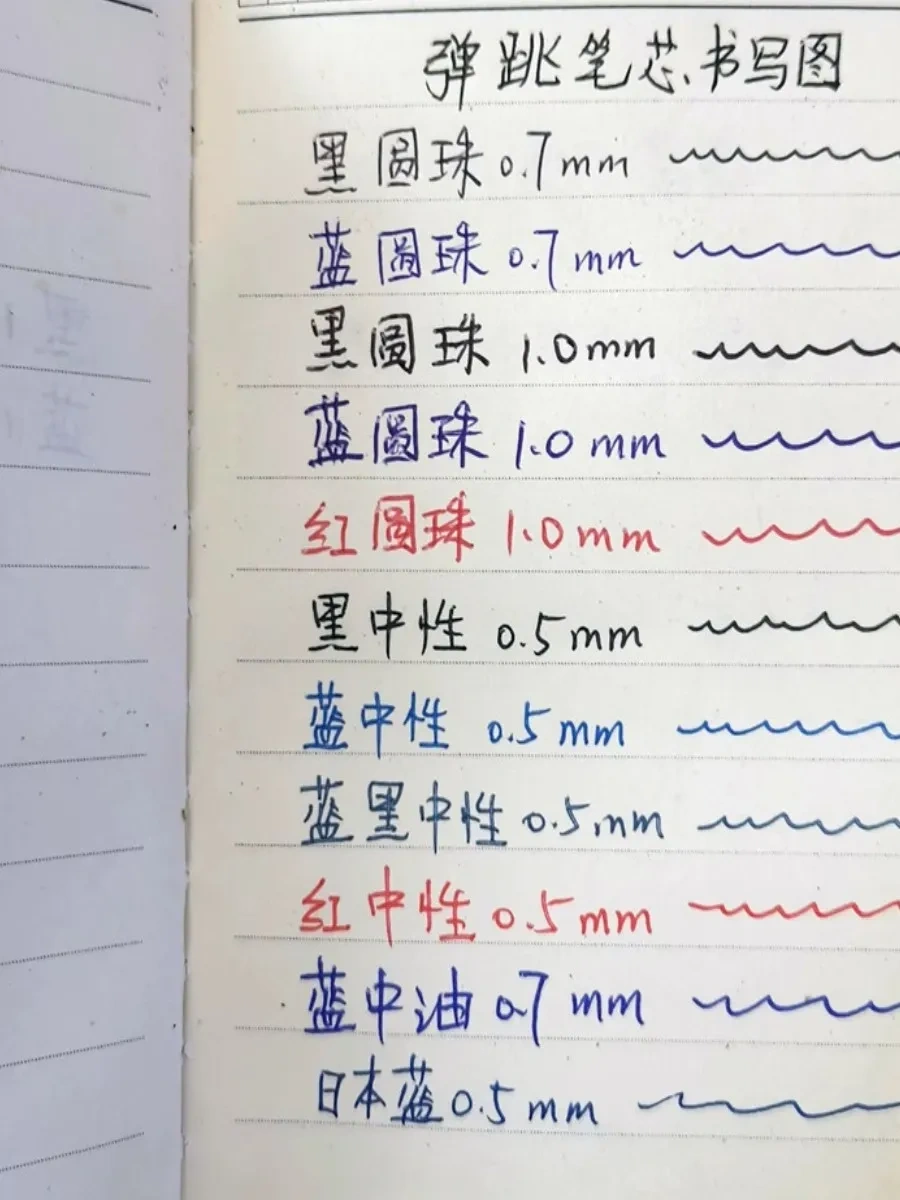 弹跳笔芯书写图
黑圆珠 0.7mm
蓝圆珠 0.7mm
黑圆珠 1.0mm
蓝圆珠 1.0mm
红圆珠 1.0mm
黑中性 0.5mm
蓝中性 0.5mm
蓝黑中性 0.5mm
红中性 0.5mm
蓝中油 0.7mm
日本蓝 0.5mm